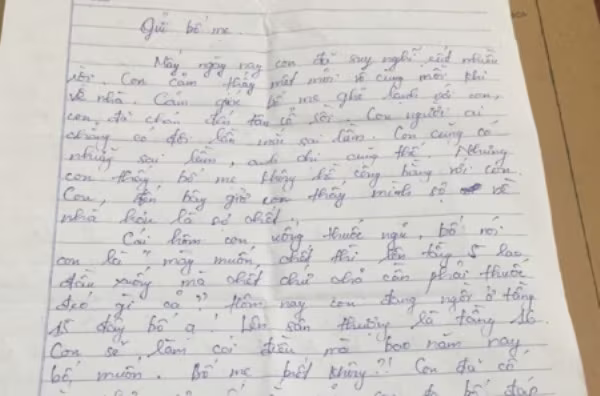 Gửi bố mẹ.
Mấy ngày nay con đã suy nghĩ rất nhiều
rồi. Con cảm thấy mệt mỏi vô cùng mỗi khi
về nhà. Cảm giác bố mẹ ghẻ lạnh với con,
con đã chán đến tận cổ rồi. Con người ai
chẳng có đôi lần mắc sai lầm. Con cũng có
những sai lầm, anh chị cũng thế. Nhưng
con thấy bố mẹ không hề công bằng với con.
Con, đến bây giờ con thấy mình sợ về
nhà hơn là sợ chết.
Cái hôm con uống thuốc ngủ, bố nói
con là "mày muốn chết thì lên tầng 5 lao
đầu xuống mà chết chứ chả cần phải thuốc
đxó gì cả"? Hôm nay con đang ngồi ở tầng
15 đây bố ạ! Lên sân thượng là tầng 16.
Con sẽ làm cái điều mà bao năm nay
bố muốn. Bố mẹ biết không?! Con đã cố